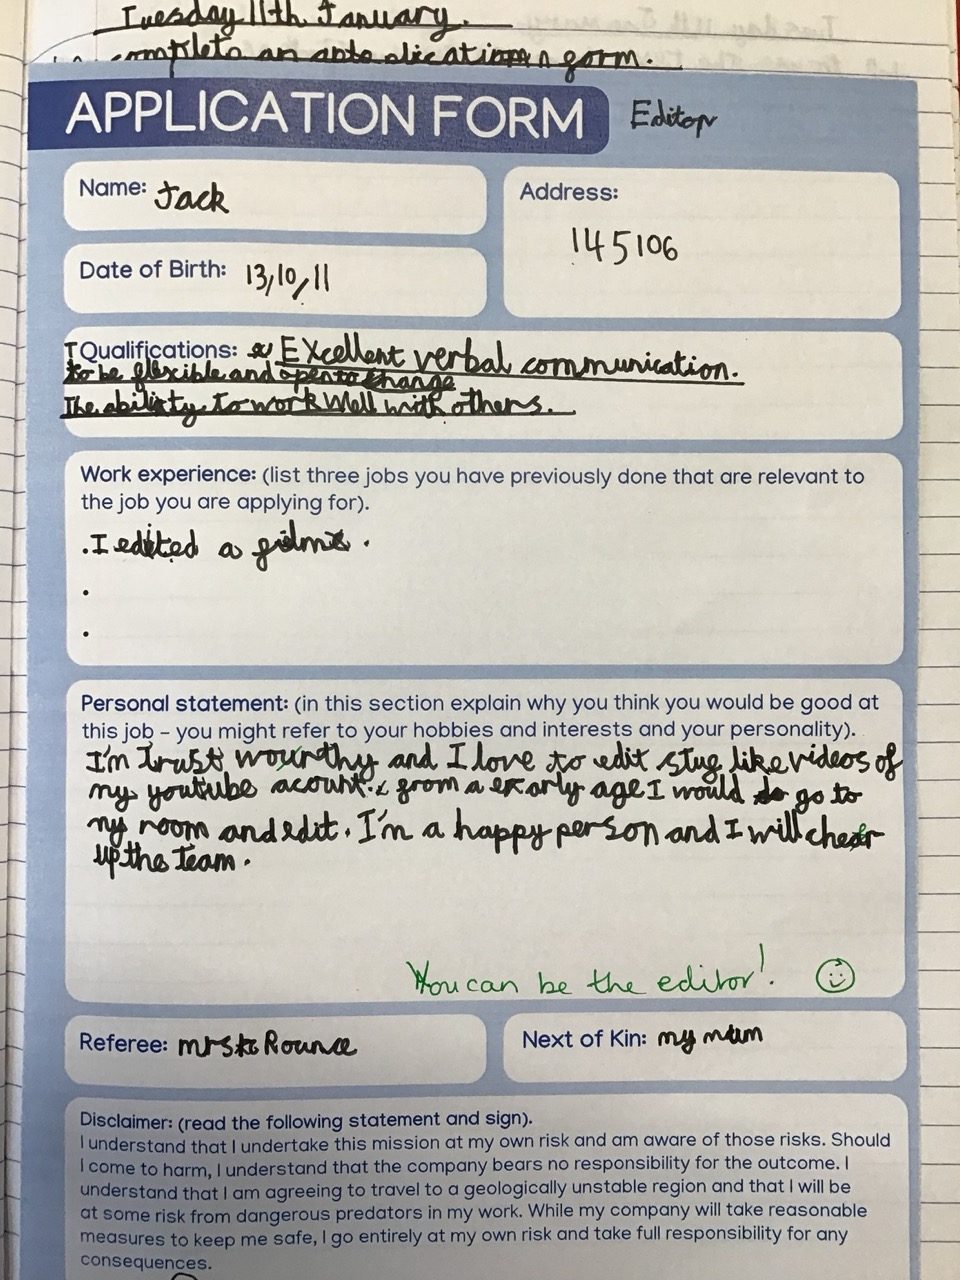 Tuesday 11th January.
complete an apto plication gorm.
APPLICATION FORM Editor
Name: Jack
Address:
145106
Date of Birth: 13/10/11
Qualifications: Excellent verbal communication.
to be flexible and open to change
The ability to work Well with others.
Work experience: (list three jobs you have previously done that are relevant to
the job you are applying for).
. I edited a film .
.
.
Personal statement: (in this section explain why you think you would be good at
this job – you might refer to your hobbies and interests and your personality).
I'm trust wourthy and I love to edit stuf like videos of
my youtube acount. from a early age I would go to
my room and edit. I'm a happy person and I will cheer
up the team.
You can be the editor!
Referee: mrs Rounce
Next of Kin: my mum
Disclaimer: (read the following statement and sign).
I understand that I undertake this mission at my own risk and am aware of those risks. Should
I come to harm, I understand that the company bears no responsibility for the outcome. I
understand that I am agreeing to travel to a geologically unstable region and that I will be
at some risk from dangerous predators in my work. While my company will take reasonable
measures to keep me safe, I go entirely at my own risk and take full responsibility for any
consequences.